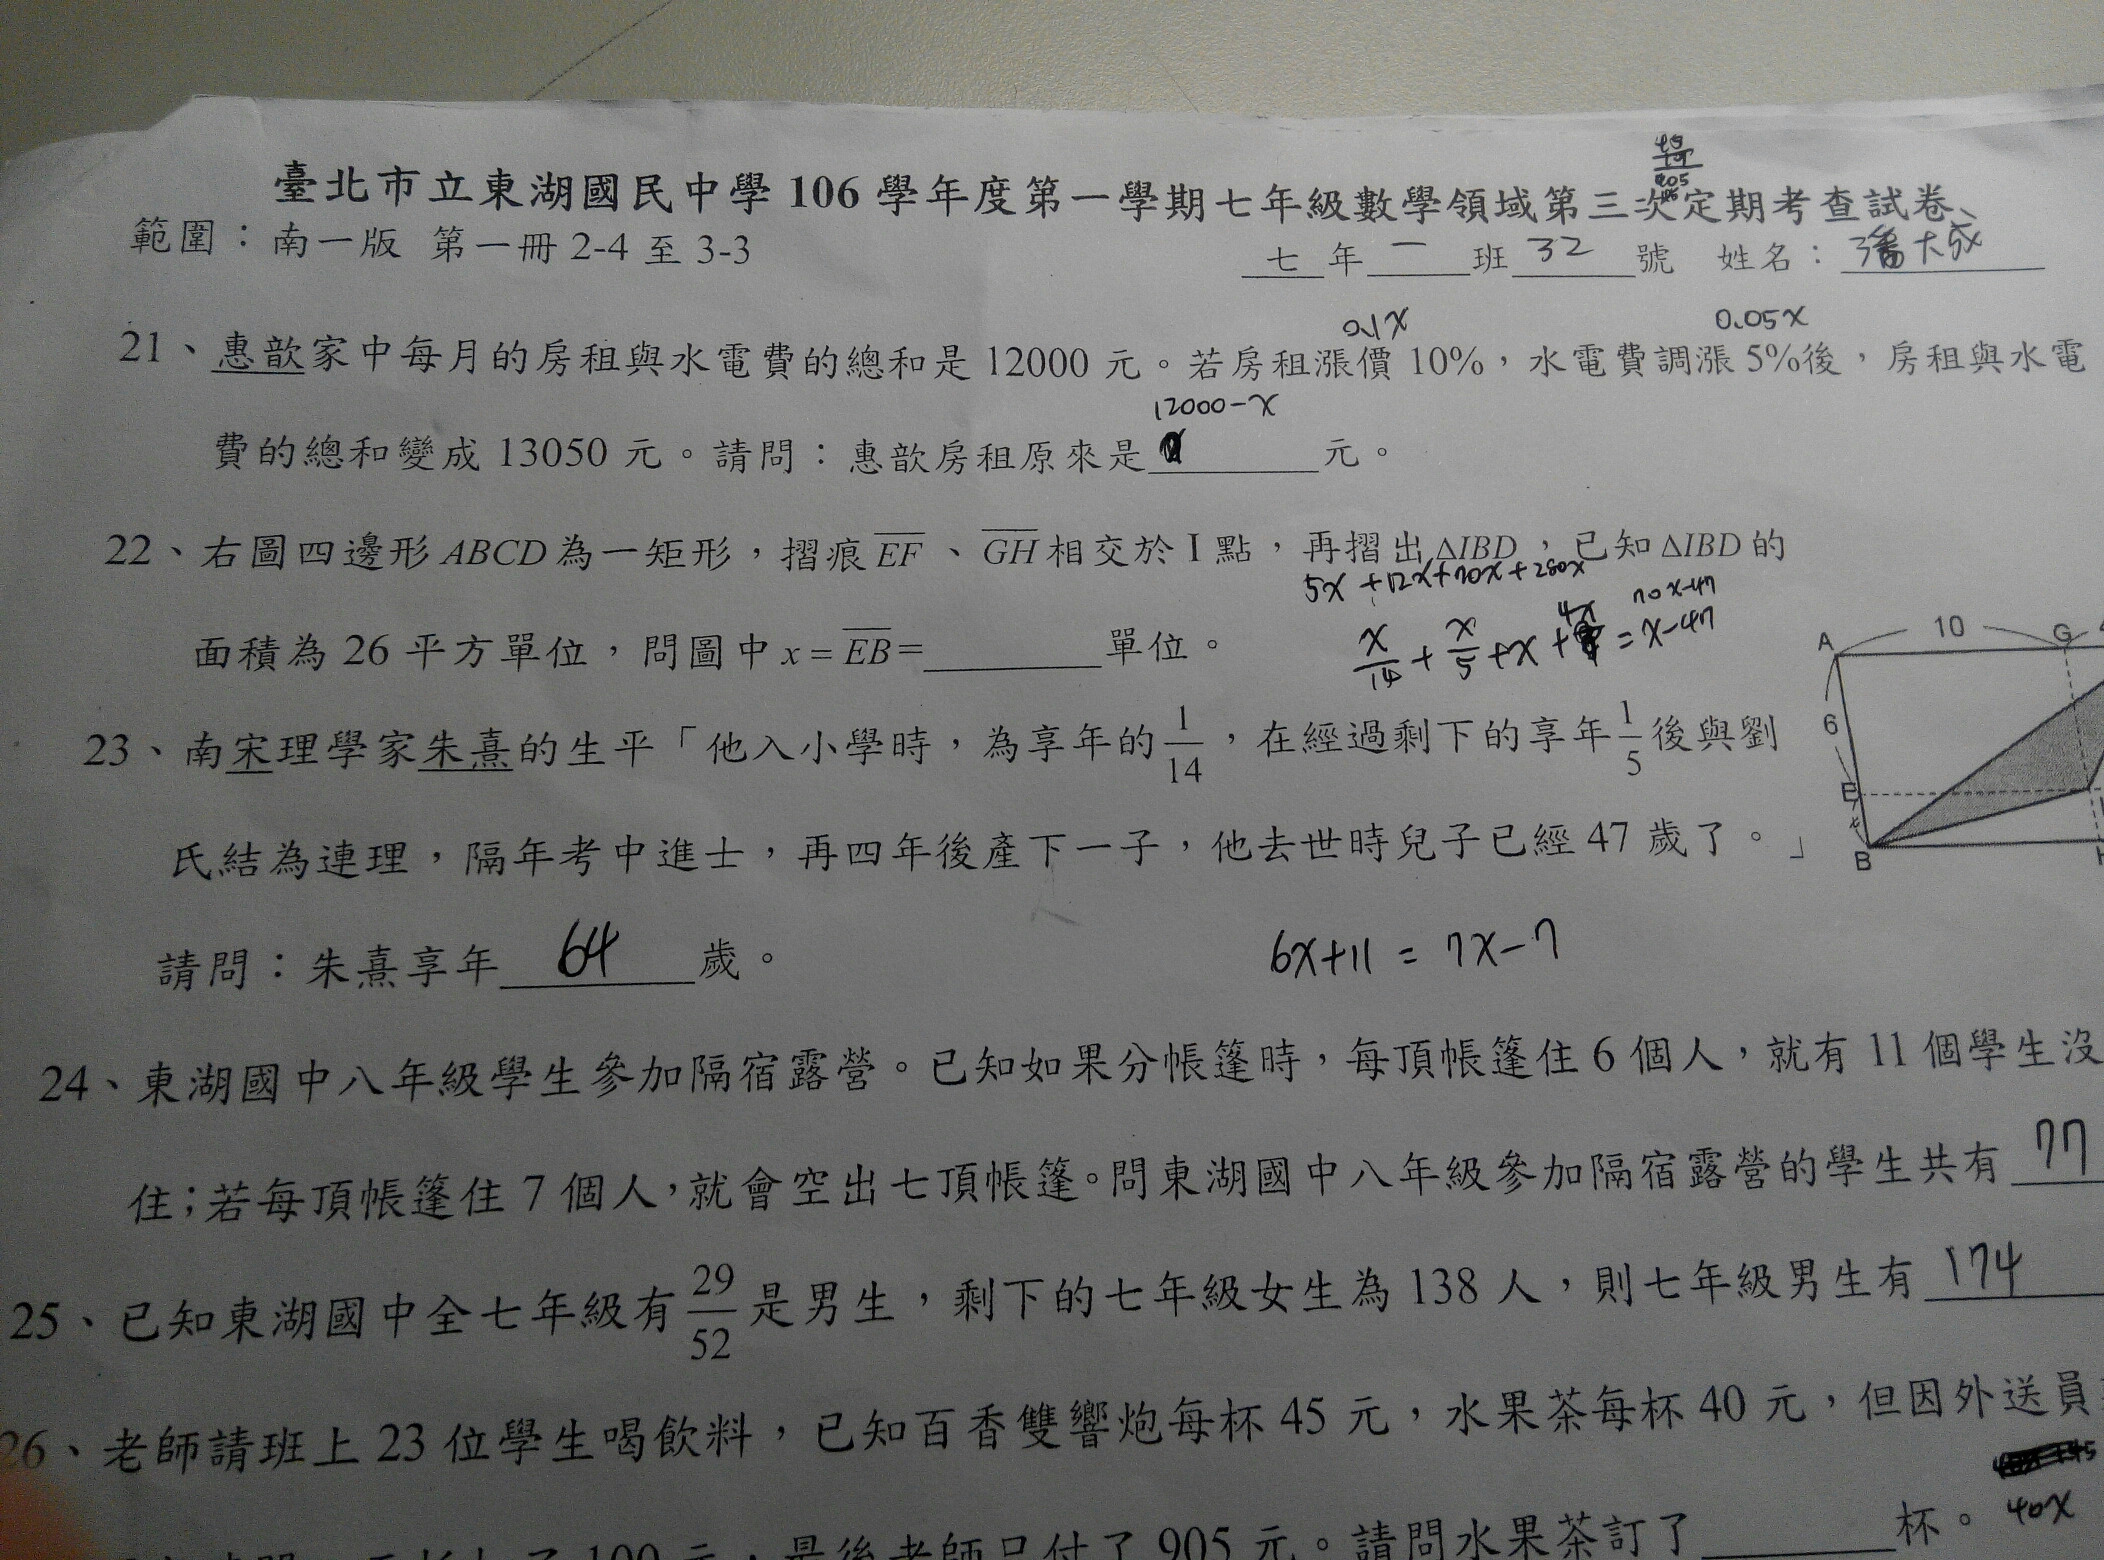 臺北市立東湖國民中學 106 學年度第一學期七年級數學領域第三次定期考查試卷
範圍：南一版 第一冊 2-4 至 3-3
七 年 一 班 32 號 姓名：潘大成
0.1x 0.05x
21、惠歆家中每月的房租與水電費的總和是 12000 元。若房租漲價 10%，水電費調漲 5%後，房租與水電
12000-x
費的總和變成 13050 元。請問：惠歆房租原來是 元。
22、右圖四邊形 ABCD 為一矩形，摺痕 EF、GH 相交於 I 點，再摺出 ΔIBD，已知 ΔIBD 的
5x+12x+70x+280x 70x-47
面積為 26 平方單位，問圖中 x = EB= 單位。
x/14 + x/5 + x + 4x = x-47
A 10 G
6
E
x
B
23、南宋理學家朱熹的生平「他入小學時，為享年的 1/14，在經過剩下的享年 1/5 後與劉
氏結為連理，隔年考中進士，再四年後產下一子，他去世時兒子已經 47 歲了。」
請問：朱熹享年 64 歲。
6x+11 = 7x-7
24、東湖國中八年級學生參加隔宿露營。已知如果分帳篷時，每頂帳篷住 6 個人，就有 11 個學生沒
住；若每頂帳篷住 7 個人，就會空出七頂帳篷。問東湖國中八年級參加隔宿露營的學生共有 77
25、已知東湖國中全七年級有 29/52 是男生，剩下的七年級女生為 138 人，則七年級男生有 174
26、老師請班上 23 位學生喝飲料，已知百香雙響炮每杯 45 元，水果茶每杯 40 元，但因外送員
40x
100 元，最後老師只付了 905 元。請問水果茶訂了 杯。